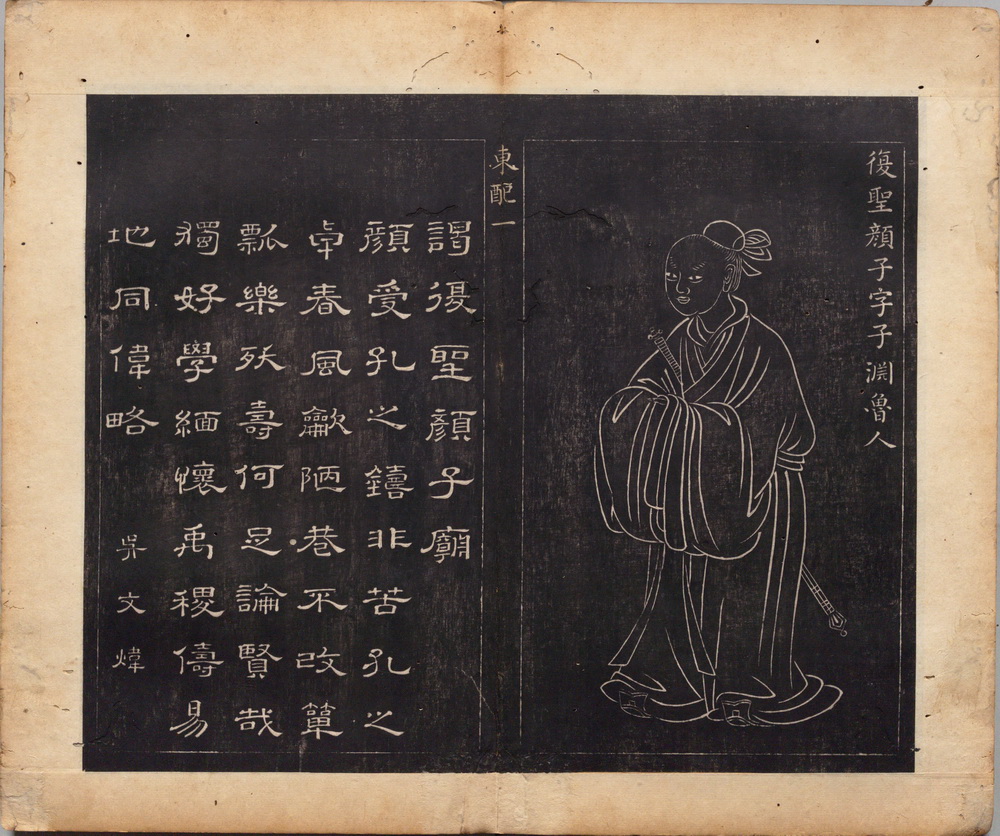 復聖顏子字子淵魯人
東配一
謁復聖顏子廟
顏受孔之鑄非苦孔之
卓春風龡陋巷不改簞
瓢樂殀壽何足論賢哉
獨好學緬懷禹稷儔易
地同偉略 吳文煒